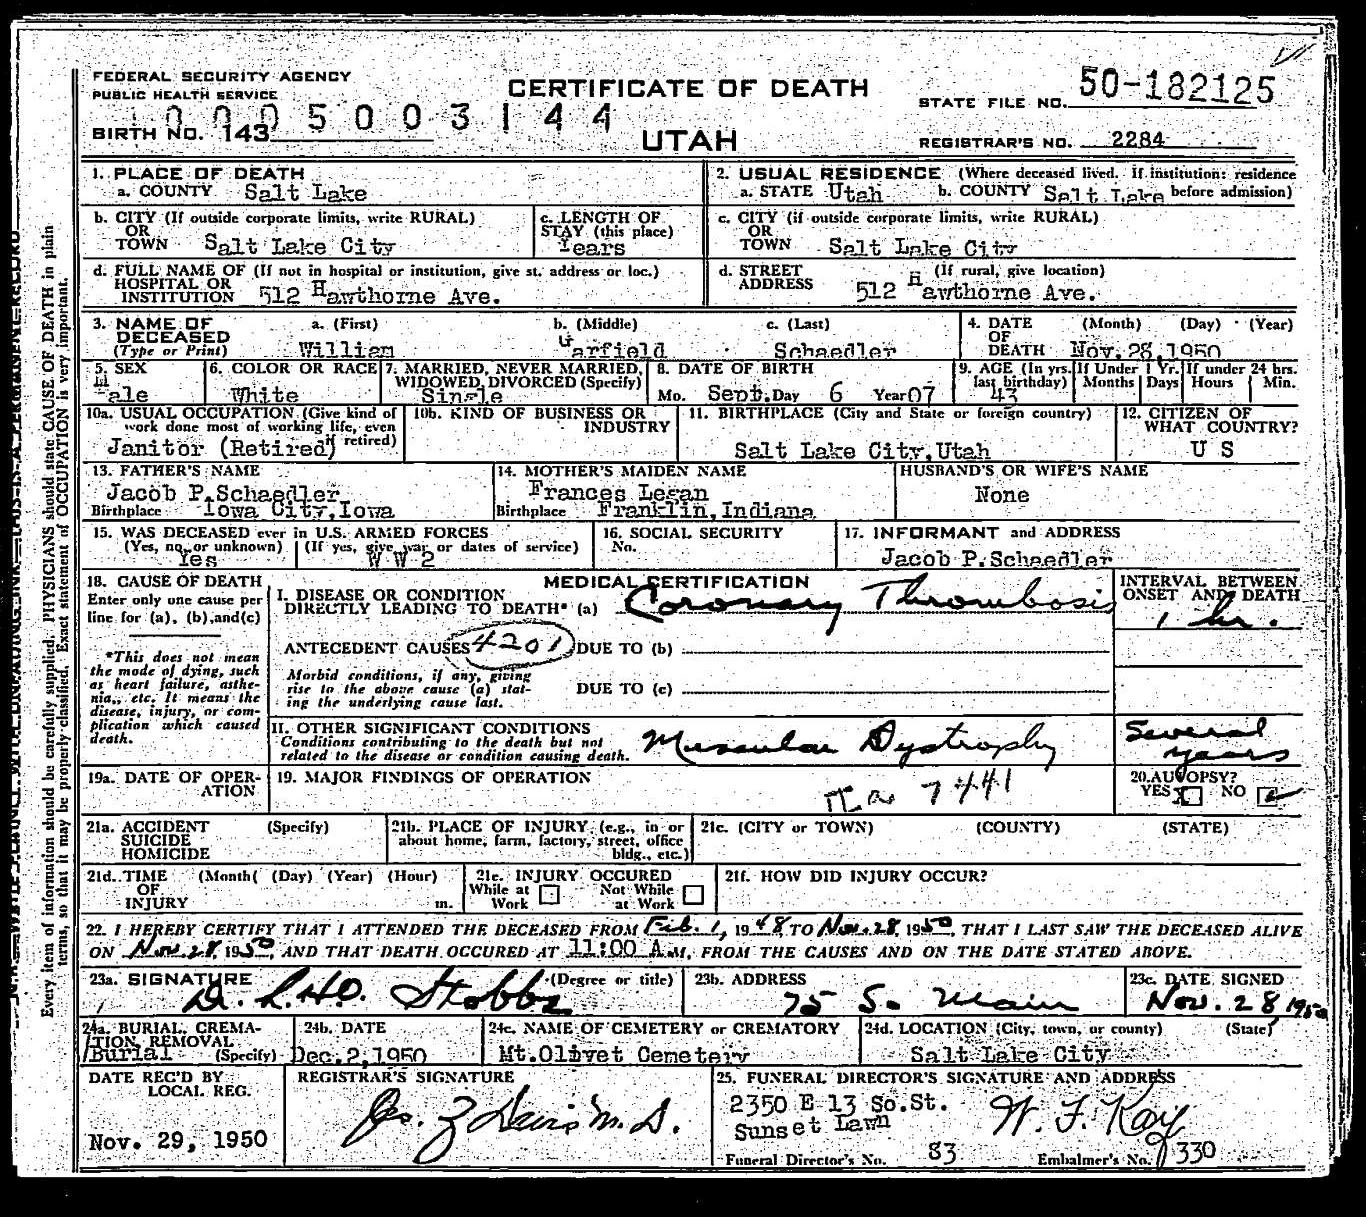 FEDERAL SECURITY AGENCY
PUBLIC HEALTH SERVICE
CERTIFICATE OF DEATH
STATE FILE NO. 50-182125
0005003144
BIRTH NO. 143
UTAH
REGISTRAR'S NO. 2284
1. PLACE OF DEATH
a. COUNTY Salt Lake
2. USUAL RESIDENCE (Where deceased lived. If institution: residence before admission)
a. STATE Utah b. COUNTY Salt Lake
b. CITY (If outside corporate limits, write RURAL)
OR
TOWN Salt Lake City
c. LENGTH OF
STAY (this place)
Years
c. CITY (if outside corporate limits, write RURAL)
OR
TOWN Salt Lake City
d. FULL NAME OF (If not in hospital or institution, give st. address or loc.)
HOSPITAL OR
INSTITUTION 512 Hawthorne Ave.
d. STREET
ADDRESS
(If rural, give location)
512 Hawthorne Ave.
3. NAME OF
DECEASED
(Type or Print)
a. (First)
William
b. (Middle)
Garfield
c. (Last)
Schaedler
4. DATE (Month) (Day) (Year)
OF
DEATH Nov. 28,1950
5. SEX
Male
6. COLOR OR RACE
White
7. MARRIED, NEVER MARRIED,
WIDOWED, DIVORCED (Specify)
Single
8. DATE OF BIRTH
Mo. Sept. Day 6 Year 07
9. AGE (In yrs. last birthday)
43
If Under 1 Yr.
Months Days
If under 24 hrs.
Hours Min.
10a. USUAL OCCUPATION (Give kind of
work done most of working life, even
if retired)
Janitor (Retired)
10b. KIND OF BUSINESS OR
INDUSTRY
11. BIRTHPLACE (City and State or foreign country)
Salt Lake City,Utah
12. CITIZEN OF
WHAT COUNTRY?
U S
13. FATHER'S NAME
Jacob P.Schaedler
Birthplace Iowa City,Iowa
14. MOTHER'S MAIDEN NAME
Frances Legan
Birthplace Franklin,Indiana
HUSBAND'S OR WIFE'S NAME
None
15. WAS DECEASED ever in U.S. ARMED FORCES
(Yes, no, or unknown) (If yes, give war or dates of service)
Yes W W 2
16. SOCIAL SECURITY
No.
17. INFORMANT and ADDRESS
Jacob P.Schaedler
18. CAUSE OF DEATH
Enter only one cause per
line for (a), (b),and(c)
*This does not mean
the mode of dying, such
as heart failure, asthe-
nia, etc. It means the
disease, injury, or com-
plication which caused
death.
MEDICAL CERTIFICATION
I. DISEASE OR CONDITION
DIRECTLY LEADING TO DEATH* (a) Coronary Thrombosis
INTERVAL BETWEEN
ONSET AND DEATH
1 hr.
ANTECEDENT CAUSES 4201 DUE TO (b)
Morbid conditions, if any, giving
rise to the above cause (a) stat-
ing the underlying cause last.
DUE TO (c)
II. OTHER SIGNIFICANT CONDITIONS
Conditions contributing to the death but not
related to the disease or condition causing death.
Muscular Dystrophy
Several
years
19a. DATE OF OPER-
ATION
19. MAJOR FINDINGS OF OPERATION
7441
20.AUTOPSY?
YES NO
21a. ACCIDENT (Specify)
SUICIDE
HOMICIDE
21b. PLACE OF INJURY (e.g., in or
about home, farm, factory, street, office
bldg., etc.)
21c. (CITY or TOWN) (COUNTY) (STATE)
21d. TIME (Month( (Day) (Year) (Hour)
OF
INJURY m.
21e. INJURY OCCURED
While at Work Not While at Work
21f. HOW DID INJURY OCCUR?
22. I HEREBY CERTIFY THAT I ATTENDED THE DECEASED FROM Feb. 1, 1948, TO Nov. 28, 1950, THAT I LAST SAW THE DECEASED ALIVE
ON Nov. 28, 1950, AND THAT DEATH OCCURED AT 11:00 A.M, FROM THE CAUSES AND ON THE DATE STATED ABOVE.
23a. SIGNATURE (Degree or title)
Stobbs
23b. ADDRESS
75 So Main
23c. DATE SIGNED
Nov. 28 1950
24a. BURIAL, CREMA-
TION, REMOVAL
Burial (Specify)
24b. DATE
Dec.2,1950
24c. NAME OF CEMETERY or CREMATORY
Mt.Olivet Cemetery
24d. LOCATION (City, town, or county) (State)
Salt Lake City
DATE REC'D BY
LOCAL REG.
Nov. 29, 1950
REGISTRAR'S SIGNATURE
25. FUNERAL DIRECTOR'S SIGNATURE AND ADDRESS
2350 E 13 So.St.
Sunset Lawn
W. F. Kay
Funeral Director's No. 83 Embalmer's No. 330
Every item of information should be carefully supplied. PHYSICIANS should state CAUSE OF DEATH in plain
terms, so that it may be properly classified. Exact statement of OCCUPATION is very important.